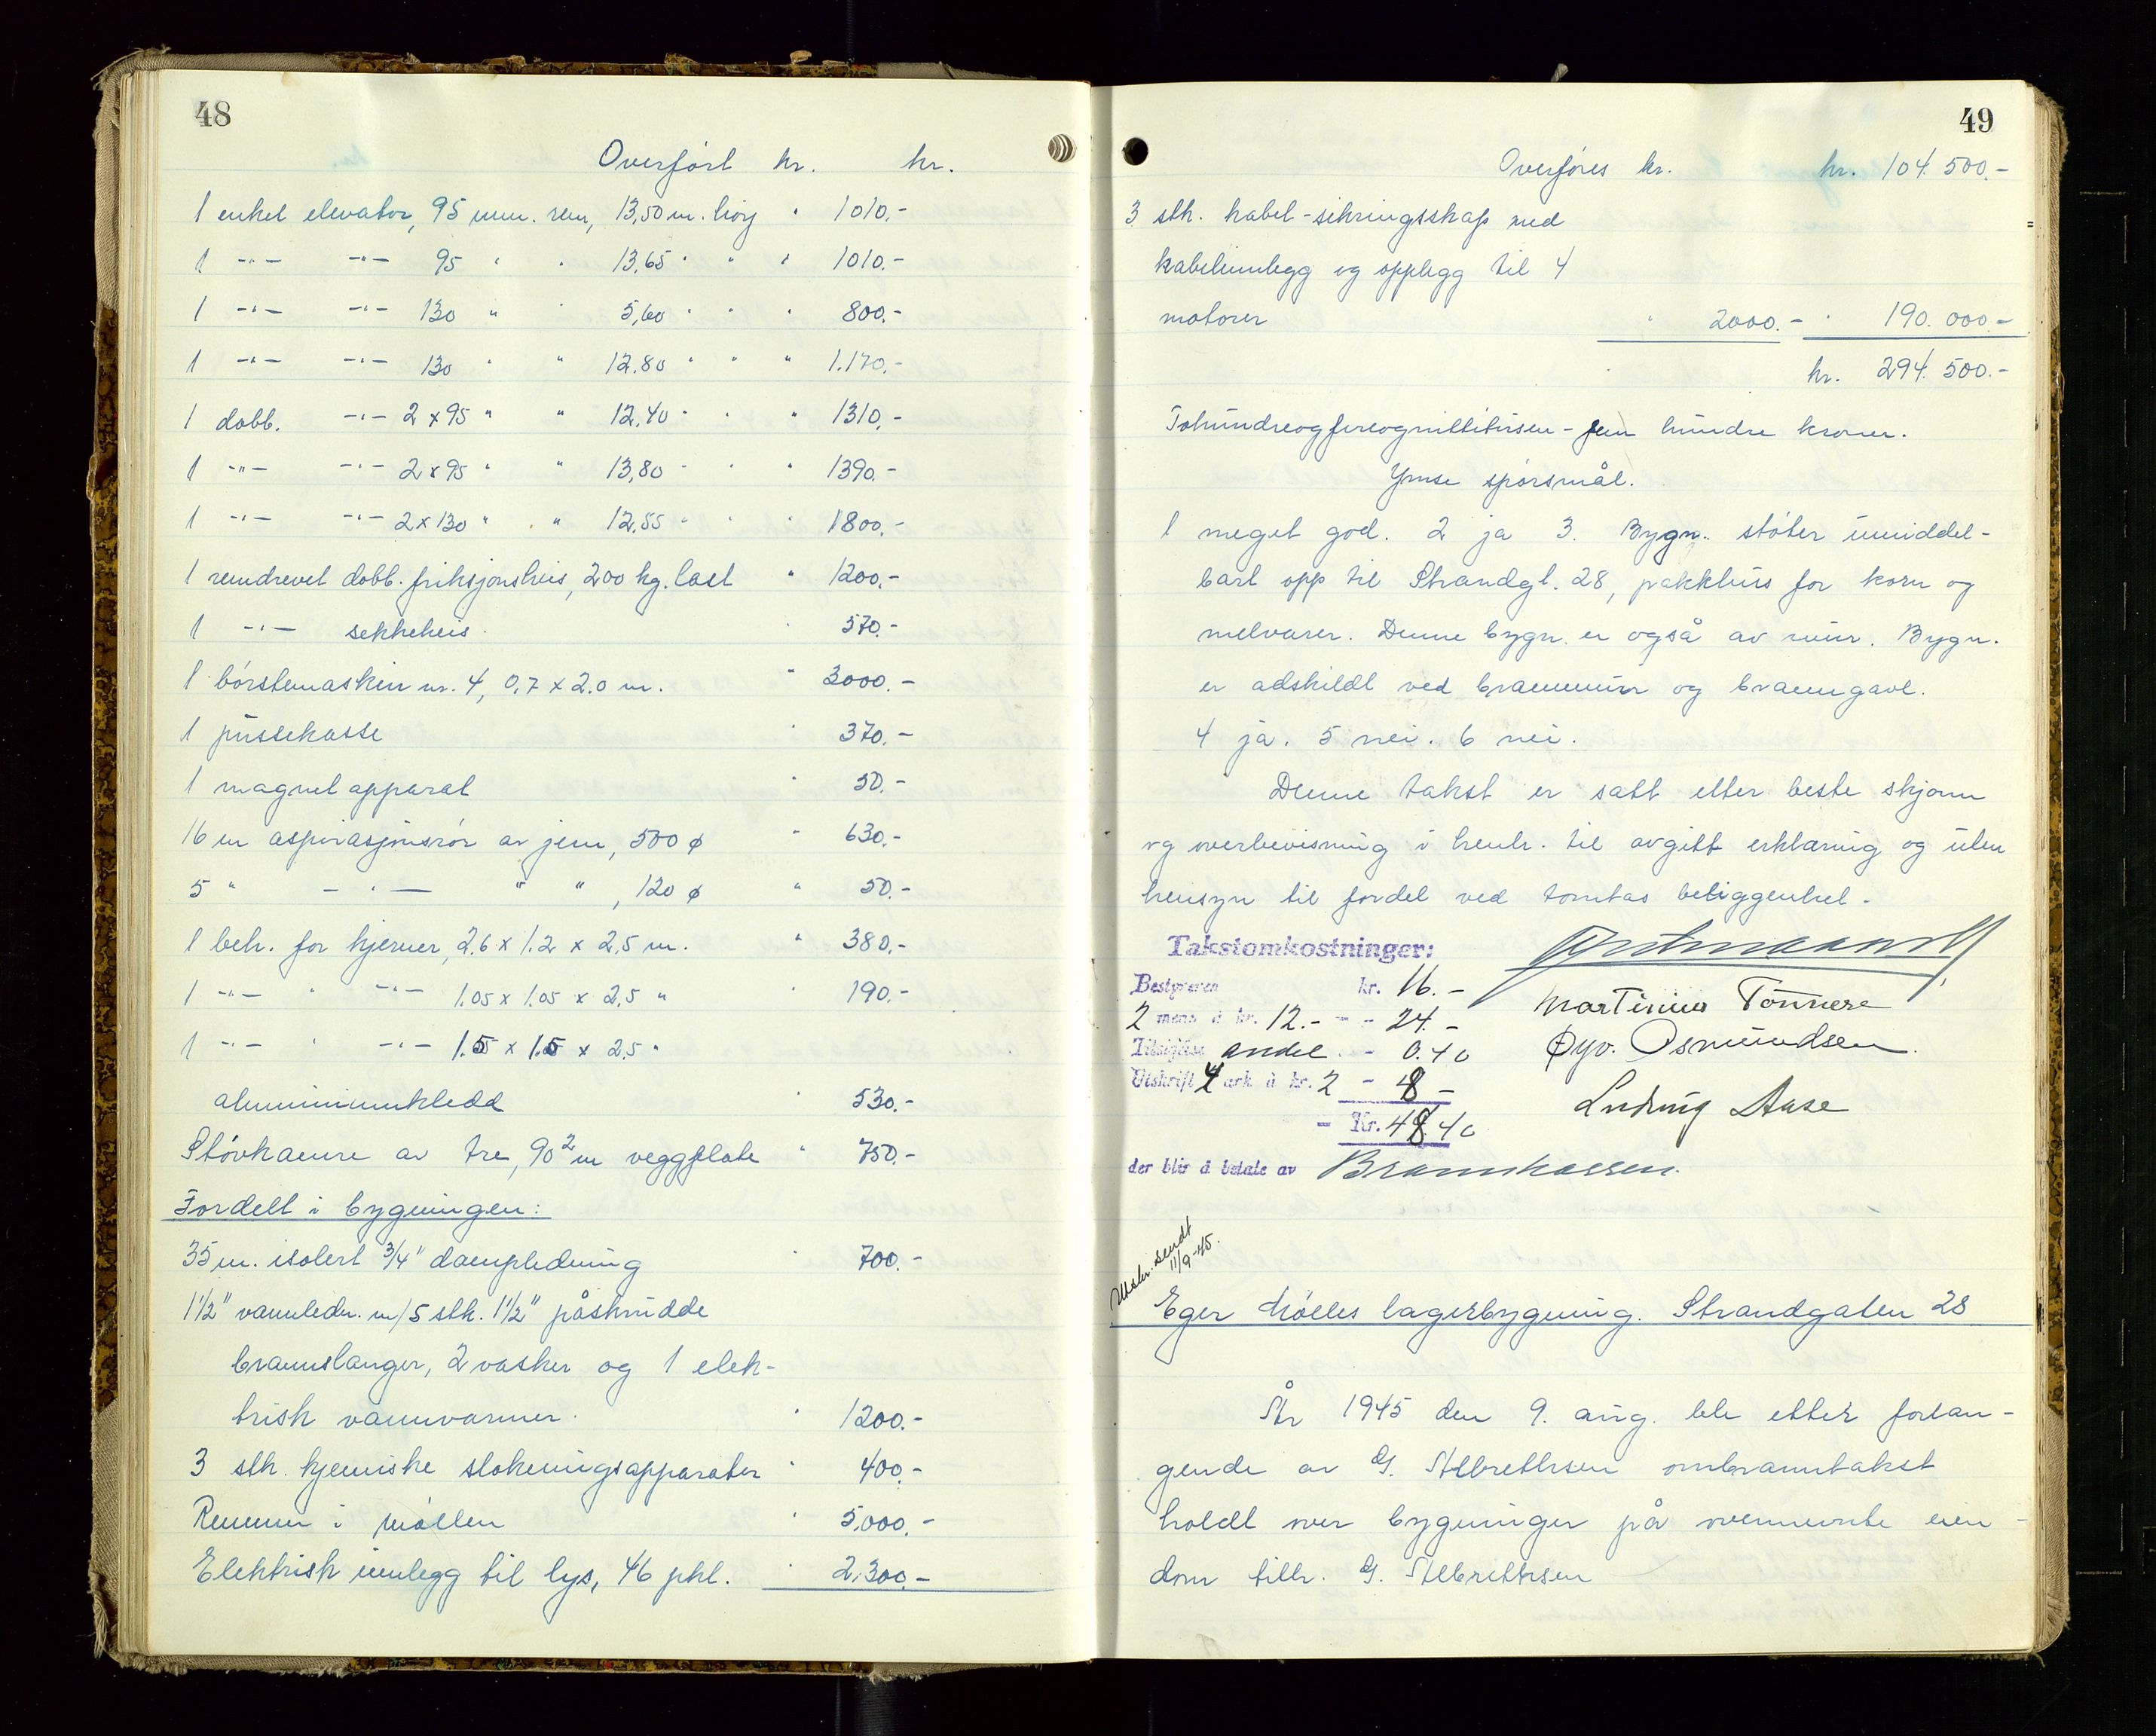 48
Overført kr. kr.
1 enkel elevator, 95 mm. rem, 13,50 m. høy " 1010.-
1 -"- -"- 95 " " 13,65 " " " 1010.-
1 -"- -"- 130 " " 5,60 " " " 800.-
1 -"- -"- 130 " " 12.80 " " " 1.170.-
1 dobb. -"- 2 x 95 " " 12.40 " " " 1310.-
1 -"- -"- 2 x 95 " " 13,80 " " " 1390.-
1 -"- -"- 2 x 130 " " 12,55 " " " 1800.-
1 remdrevet dobb. friksjonsheis, 200 kg. last " 1200.-
1 -"- sekkeheis " 570.-
1 børstemaskin nr. 4, 0.7 x 2.0 m. " 3000.-
1 pussekasse " 370.-
1 magnetapparat " 50.-
16 m aspirasjonsrør av jern, 500 ø " 630.-
5 " -"- " " , 120 ø " 50.-
1 beh. for kjerner, 2.6 x 1.2 x 2,5 m. " 380.-
1 -"- " -"- 1.05 x 1.05 x 2,5 " " 190.-
1 -"- " -"- 1.5 x 1.5 x 2.5 "
aluminiumkledd " 530.-
Støvkamre av tre, 90 m² veggplate " 750.-
Fordelt i bygningen:
35 m. isolert 3/4" dampledning " 700.-
1 1/2" vannledn. m/5 stk. 1 1/2" påskrudde
brannslanger, 2 vasker og 1 elek-
trisk vannvarmer. " 1200.-
3 stk. kjemiske slokningsapparater " 400.-
Remmer i møllen " 5,000.-
Elektrisk innlegg til lys, 46 pkl. " 2.300.-
49
Overføres kr. kr. 104.500.-
3 stk. kabel-sikringsskap med
kabelinnlegg og opplegg til 4
motorer " 2000.- " 190.000.-
kr. 294.500.-
Tohundreogfireognittitusen-fem hundre kroner.
Ymse spørsmål.
1 meget god. 2 ja 3. Bygn. støter umiddel-
bart opp til Strandgt. 28, pakkhus for korn og
melvarer. Denne bygn. er også av mur. Bygn.
er adskildt ved brannmur og branngavl.
4 ja. 5 nei. 6 nei.
Denne takst er satt etter beste skjønn
og overbevisning i henh. til avgitt erklæring og uten
hensyn til fordel ved tomtas beliggenhet.
Takstomkostninger:
Bestyreren kr. 16.-
2 menn à kr. 12.- - - 24.-
Martinius Tønnere
andel - 0.40
Øyv. Osmundsen.
Utskrift 4 ark à kr. 2 - 8 -
Ludvig Aase
- Kr. 48.40
der blir å betale av Brannkassen.
Utskr. sendt
11/9-45.
Eger Mølles lagerbygning. Strandgaten 28
År 1945 den 9. aug. ble etter forlan-
gende av G. Albrethsen ombranntakst
holdt over bygninger på ovennevnte eien-
dom tilh. G. Albrethsen